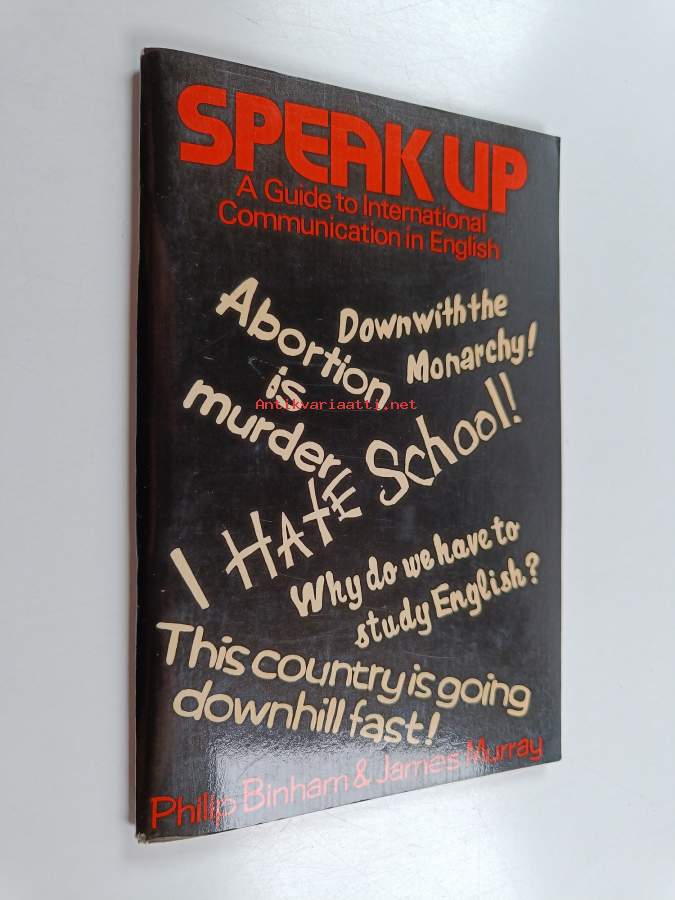 SPEAK UP
A Guide to International
Communication in English
Abortion
is
murder
Down with the
Monarchy!
Antikvariaatti.net
I HATE School!
Why do we have to
study English?
This country is going
downhill fast!
Philip Binham & James Murray